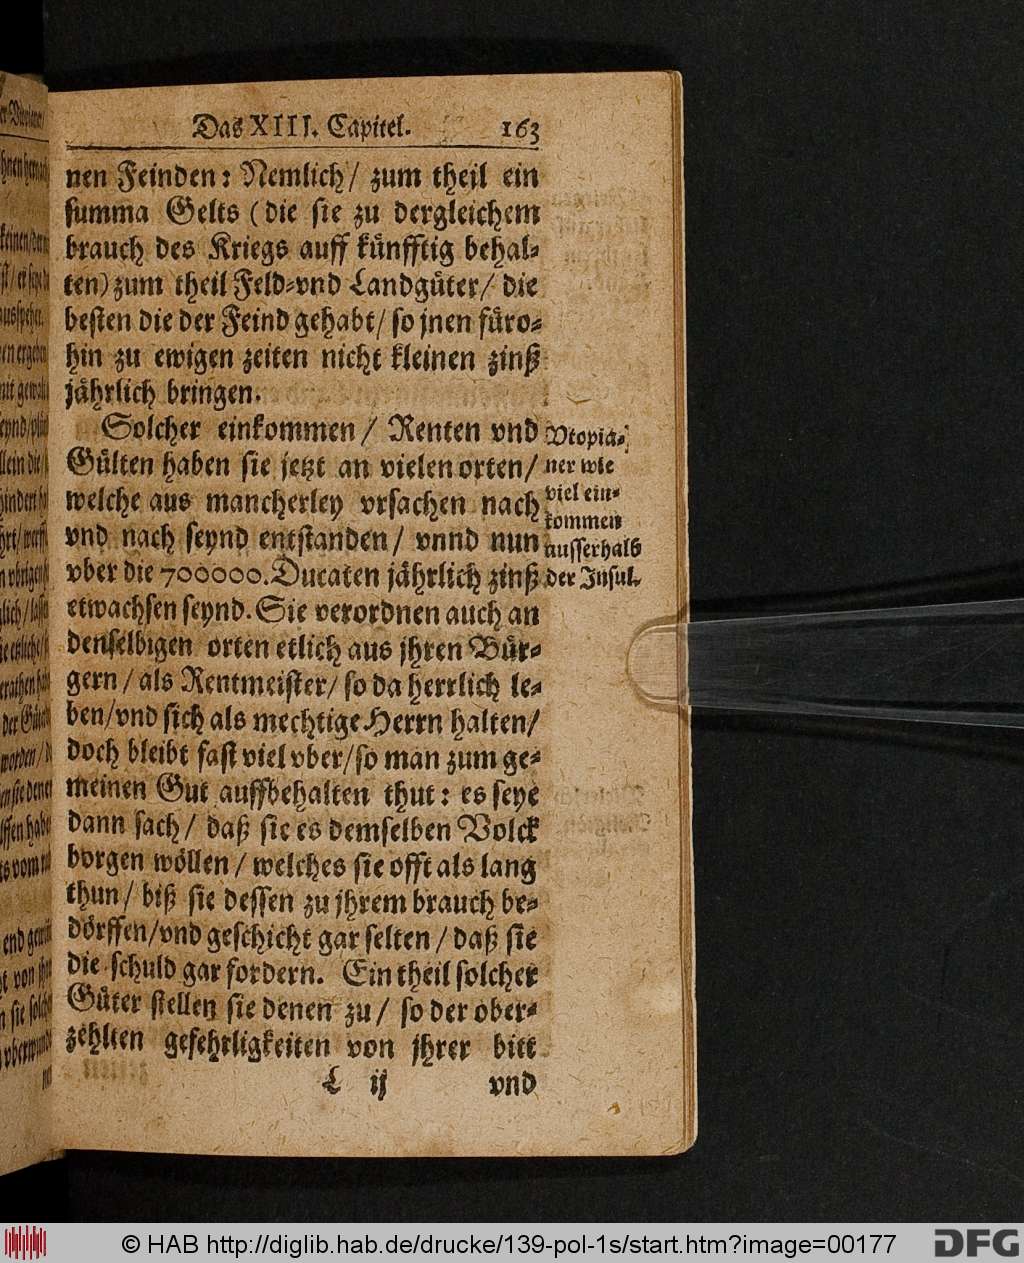 Das XIII. Capitel. 163
nen Feinden: Nemlich/ zum theil ein
summa Gelts (die sie zu dergleichem
brauch des Kriegs auff künfftig behal-
ten) zum theil Feld-vnd Landgüter/ die
besten die der Feind gehabt/ so jnen füro-
hin zu ewigen zeiten nicht kleinen zinß
jährlich bringen.
Solcher einkommen/ Renten vnd
Gülten haben sie jetzt an vielen orten/
welche aus mancherley vrsachen nach
vnd nach seynd entstanden/ vnnd nun
vber die 700000. Ducaten jährlich zinß
etwachsen seynd. Sie verordnen auch an
denselbigen orten etlich aus jhren Bür-
gern/ als Rentmeister/ so da herrlich le-
ben/vnd sich als mechtige Herrn halten/
doch bleibt fast viel vber/so man zum ge-
meinen Gut auffbehalten thut: es seye
dann sach/ daß sie es demselben Volck
borgen wöllen/ welches sie offt als lang
thun/ biß sie dessen zu jhrem brauch be-
dörffen/vnd geschicht gar selten/ daß sie
die schuld gar fordern. Ein theil solcher
Güter stellen sie denen zu/ so der ober-
zehlten gefehrligkeiten von jhrer bitt
L ij vnd
Vtopia-
ner wie
viel ein-
kommen
ausserhalb
der Insul.
© HAB http://diglib.hab.de/drucke/139-pol-1s/start.htm?image=00177
DFG